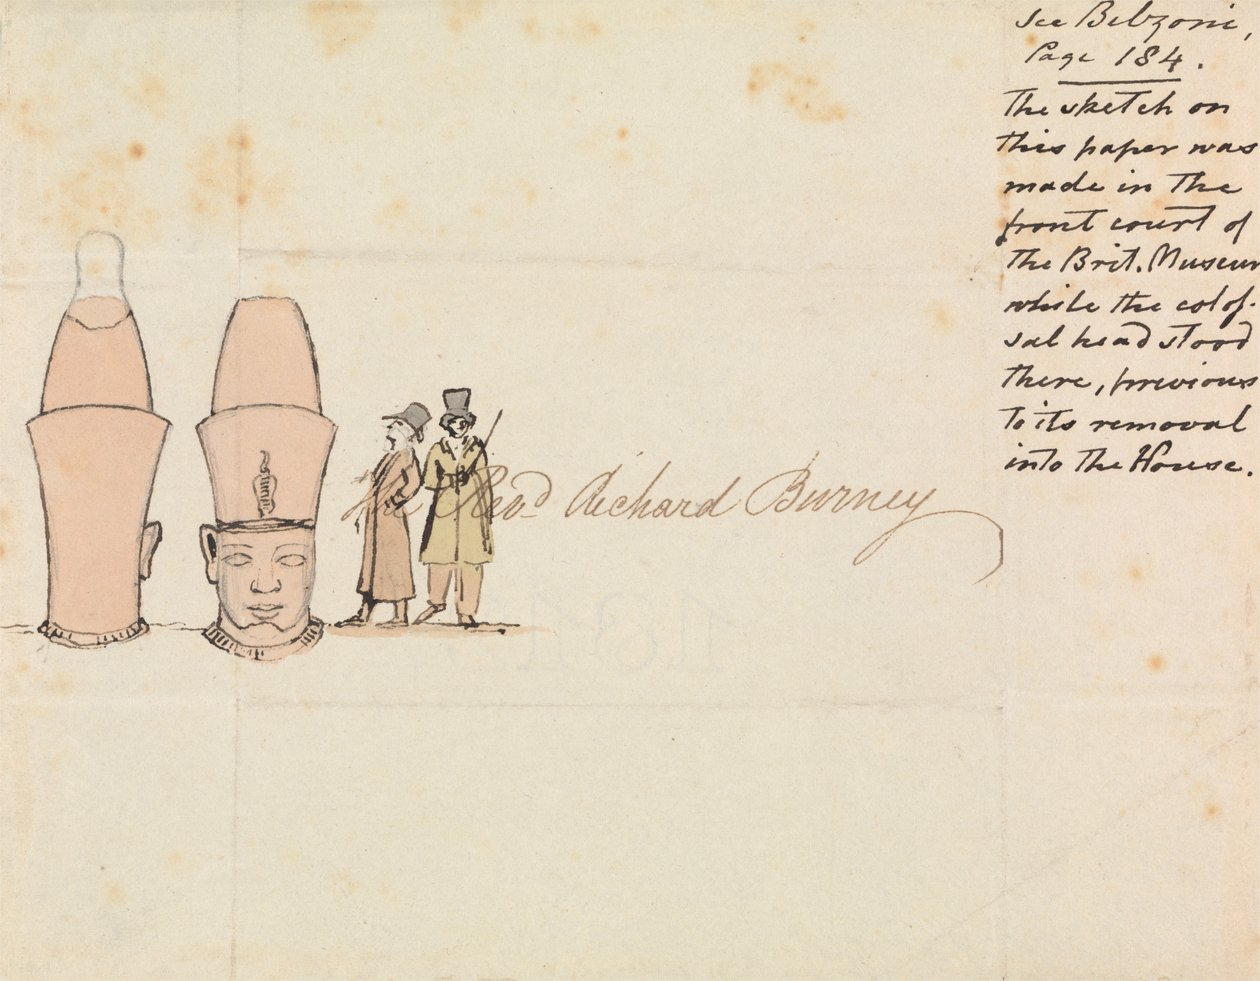 See Belzoni,
Page 184.
The sketch on
this paper was
made in the
front court of
the Brit. Museum
while the colos-
sal head stood
there, previous
to its removal
into the House.
Revd Richard Burney